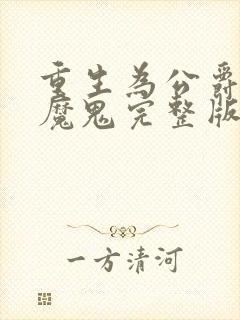 重生為公爵
魔鬼完整版
一方清河